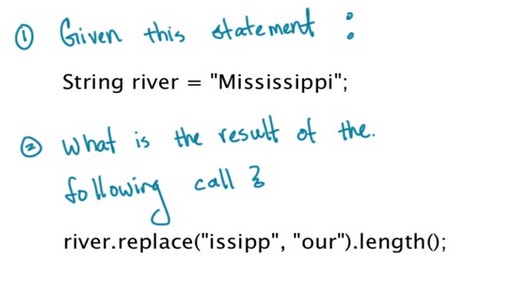 ① Given this statement :
String river = "Mississippi";
② What is the result of the.
following call ?
river.replace("issipp", "our").length();